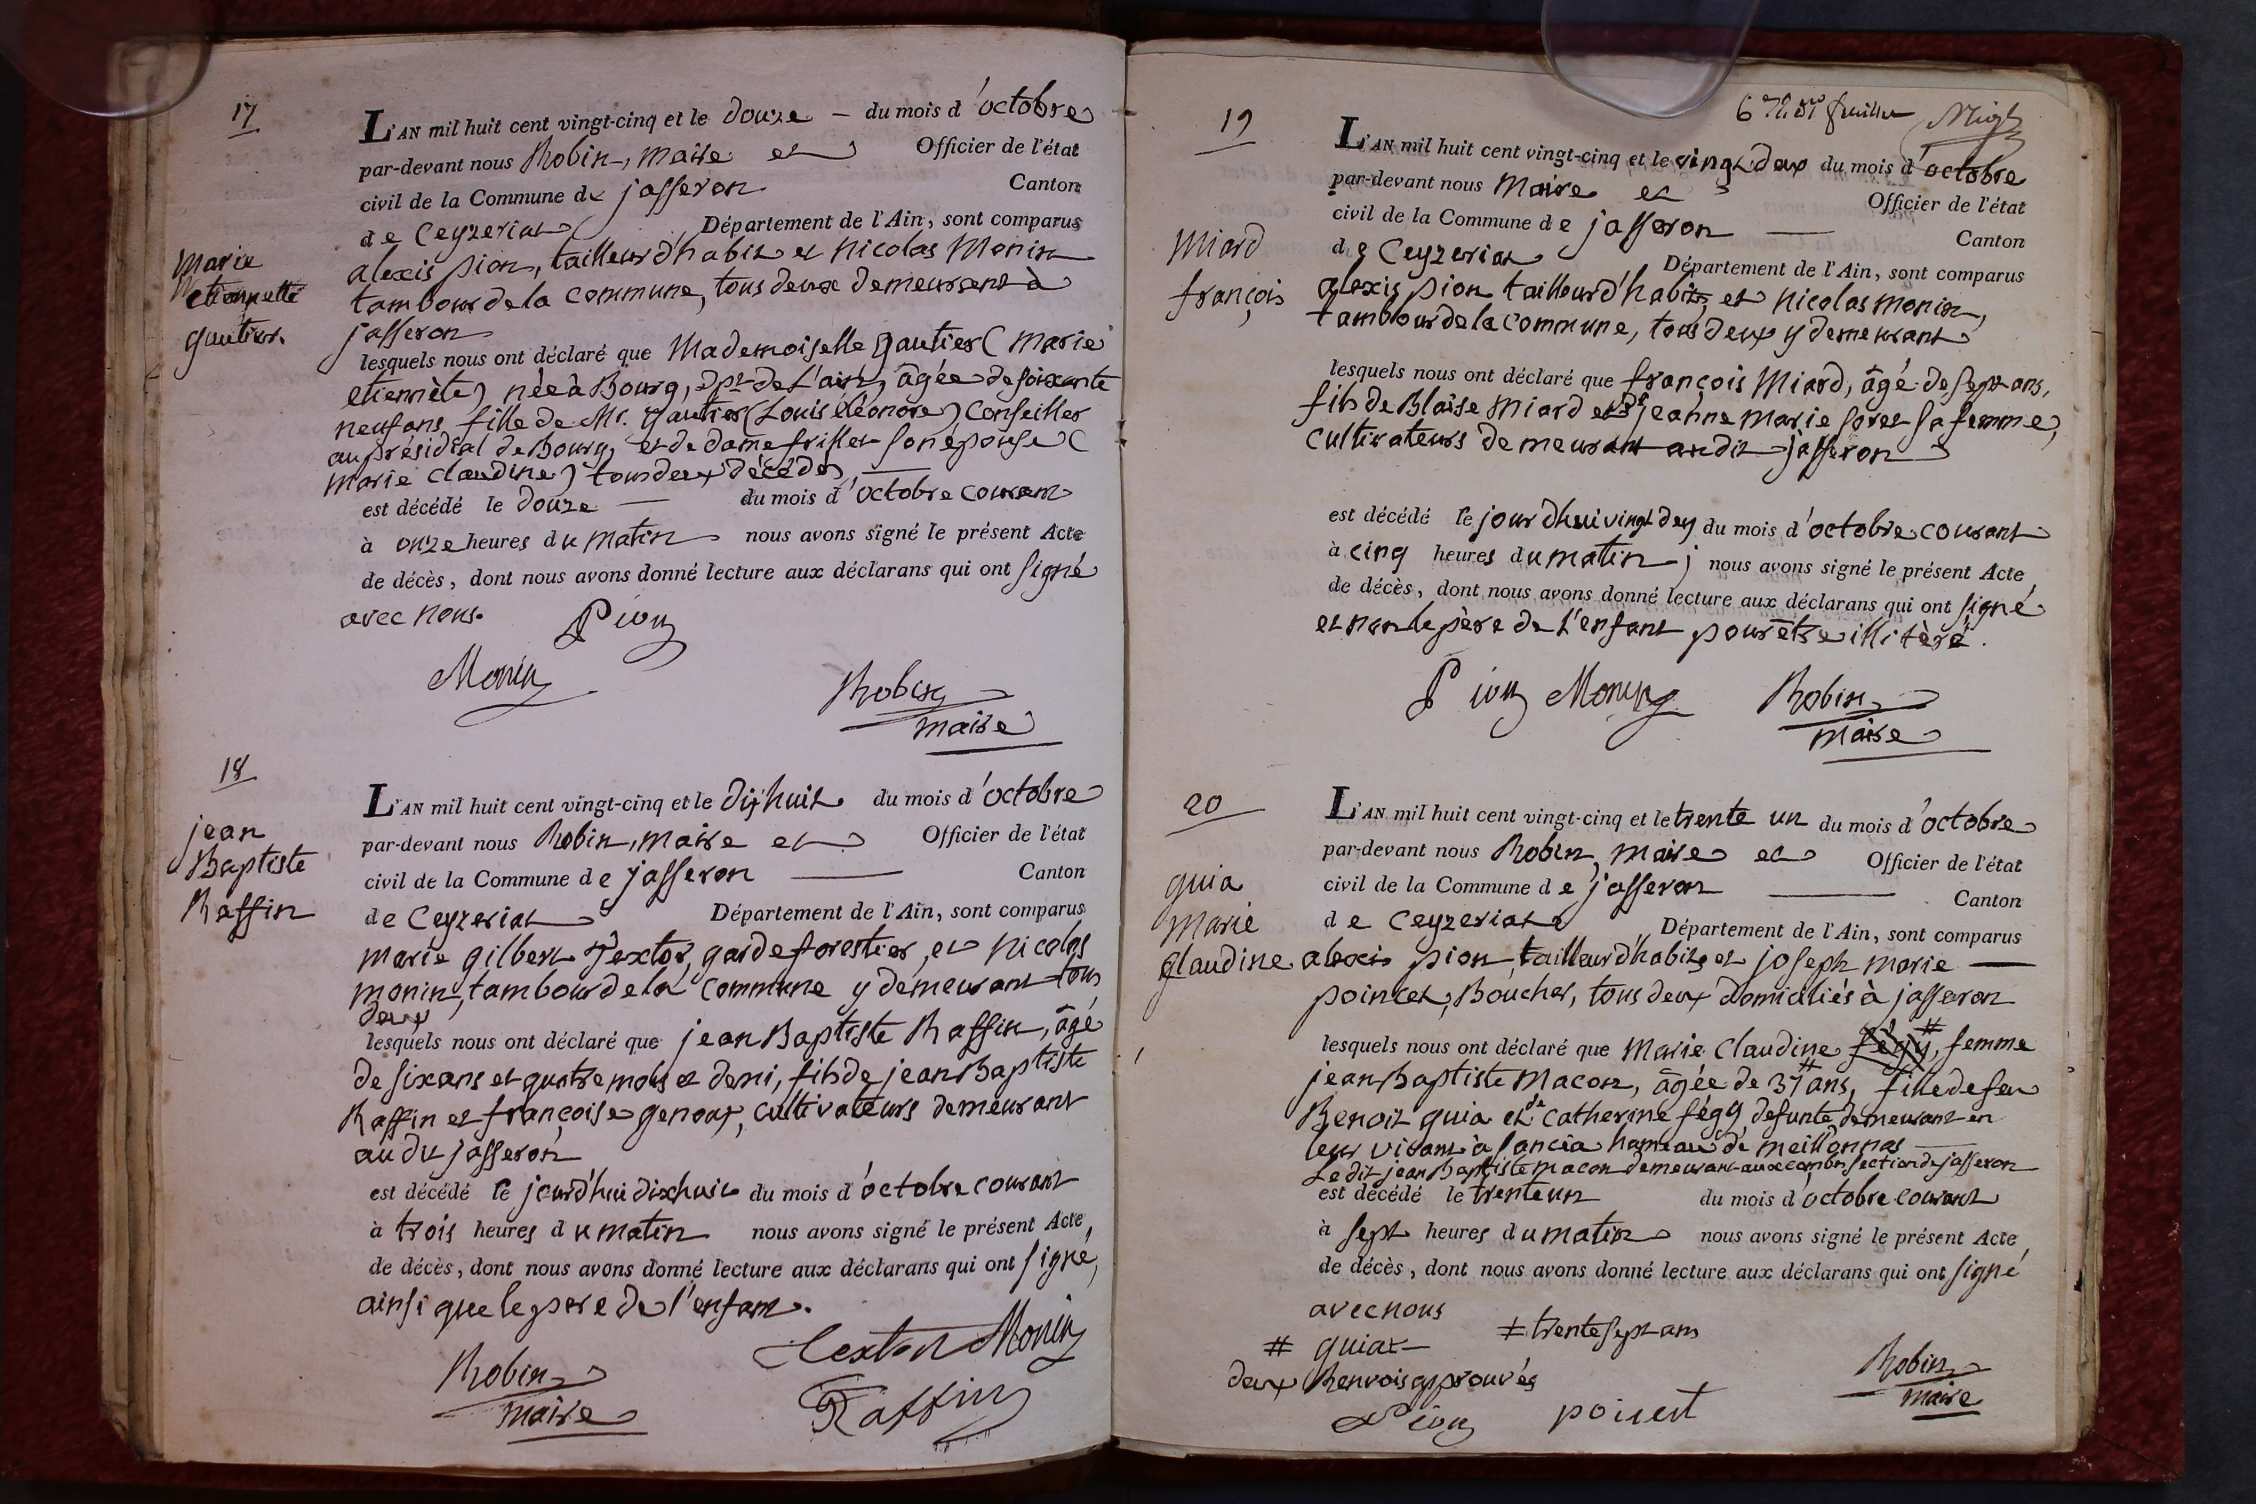 17
L'AN mil huit cent vingt-cinq et le douze – du mois d'octobre
par-devant nous Robin, maire et Officier de l'état
civil de la Commune de jasseron Canton
de Ceyzeriat Département de l'Ain, sont comparus
marie
etiennette
gautier.
alexis pion, tailleur d'habit et Nicolas Monin
tambour de la commune, tous deux demeurent à
jasseron
lesquels nous ont déclaré que Mademoiselle gautier (marie
etiennète) née à Bourg, dpt de L'ain, âgée de soixante
neuf ans, fille de Mr. gautier (Louis éléonore) Conseiller
au présidial de Bourg, et de dame frillet son épouse (
marie claudine) tous deux décédés,
est décédé le douze du mois d'octobre courant
à onze heures du matin nous avons signé le présent Acte
de décès, dont nous avons donné lecture aux déclarans qui ont signé
avec nous. Pion
Monin
Robin
maire
18
jean
Baptiste
Raffin
L'AN mil huit cent vingt-cinq et le dixhuit du mois d'octobre
par-devant nous Robin, maire et Officier de l'état
civil de la Commune de jasseron Canton
de Ceyzeriat Département de l'Ain, sont comparus
marie gilbert Textor, garde forestier, et nicolas
monin, tambour de la commune y demeurant tous
deux
lesquels nous ont déclaré que jean Baptiste Raffin, âgé
de six ans et quatre mois et demi, fils de jean Baptiste
Raffin et françoise genoux, cultivateurs demeurant
au dit jasseron
est décédé le jourd'hui dixhuit du mois d'octobre courant
à trois heures du matin nous avons signé le présent Acte
de décès, dont nous avons donné lecture aux déclarans qui ont signé,
ainsi que le père de l'enfant.
Textor Monin
Robin
maire
Raffin
6me et dr feuillet
19
L'AN mil huit cent vingt-cinq et le vingt deux du mois d'octobre
par-devant nous maire et Officier de l'état
civil de la Commune de jasseron Canton
de Ceyzeriat Département de l'Ain, sont comparus
Miard
françois
alexis pion tailleur d'habits, et nicolas monin,
tambour de la commune, tous deux y demeurant
lesquels nous ont déclaré que françois Miard, âgé de sept ans,
fils de Blaise Miard et de jeanne marie soret sa femme,
cultivateurs demeurant au dit jasseron
est décédé le jour dhui vingt deux du mois d'octobre courant
à cinq heures du matin; nous avons signé le présent Acte
de décès, dont nous avons donné lecture aux déclarans qui ont signé
et non le père de l'enfant pour être illitèré.
Pion Monin Robin
maire
20
guia
marie
glaudine
L'AN mil huit cent vingt-cinq et le trente un du mois d'octobre
par-devant nous Robin, maire et Officier de l'état
civil de la Commune de jasseron Canton
de Ceyzeriat Département de l'Ain, sont comparus
alexis pion, tailleur d'habits et joseph marie
poincet, Boucher, tous deux domiciliés à jasseron
lesquels nous ont déclaré que Marie Claudine fégy #, femme
jean Baptiste Macon, âgée de 37 # ans, fille de feu
Benoit guia et de catherine fégy defunte demeurant en
leur vivant à sancia hameau de meillonnas
Le dit jean Baptiste macon demeurant aux combes section de jasseron
est décédé le trente un du mois d'octobre courant
à sept heures du matin nous avons signé le présent Acte
de décès, dont nous avons donné lecture aux déclarans qui ont signé
avec nous
# guiat ‡ trente sept ans
deux Renvois approuvés
Robin
maire
Pion poincet